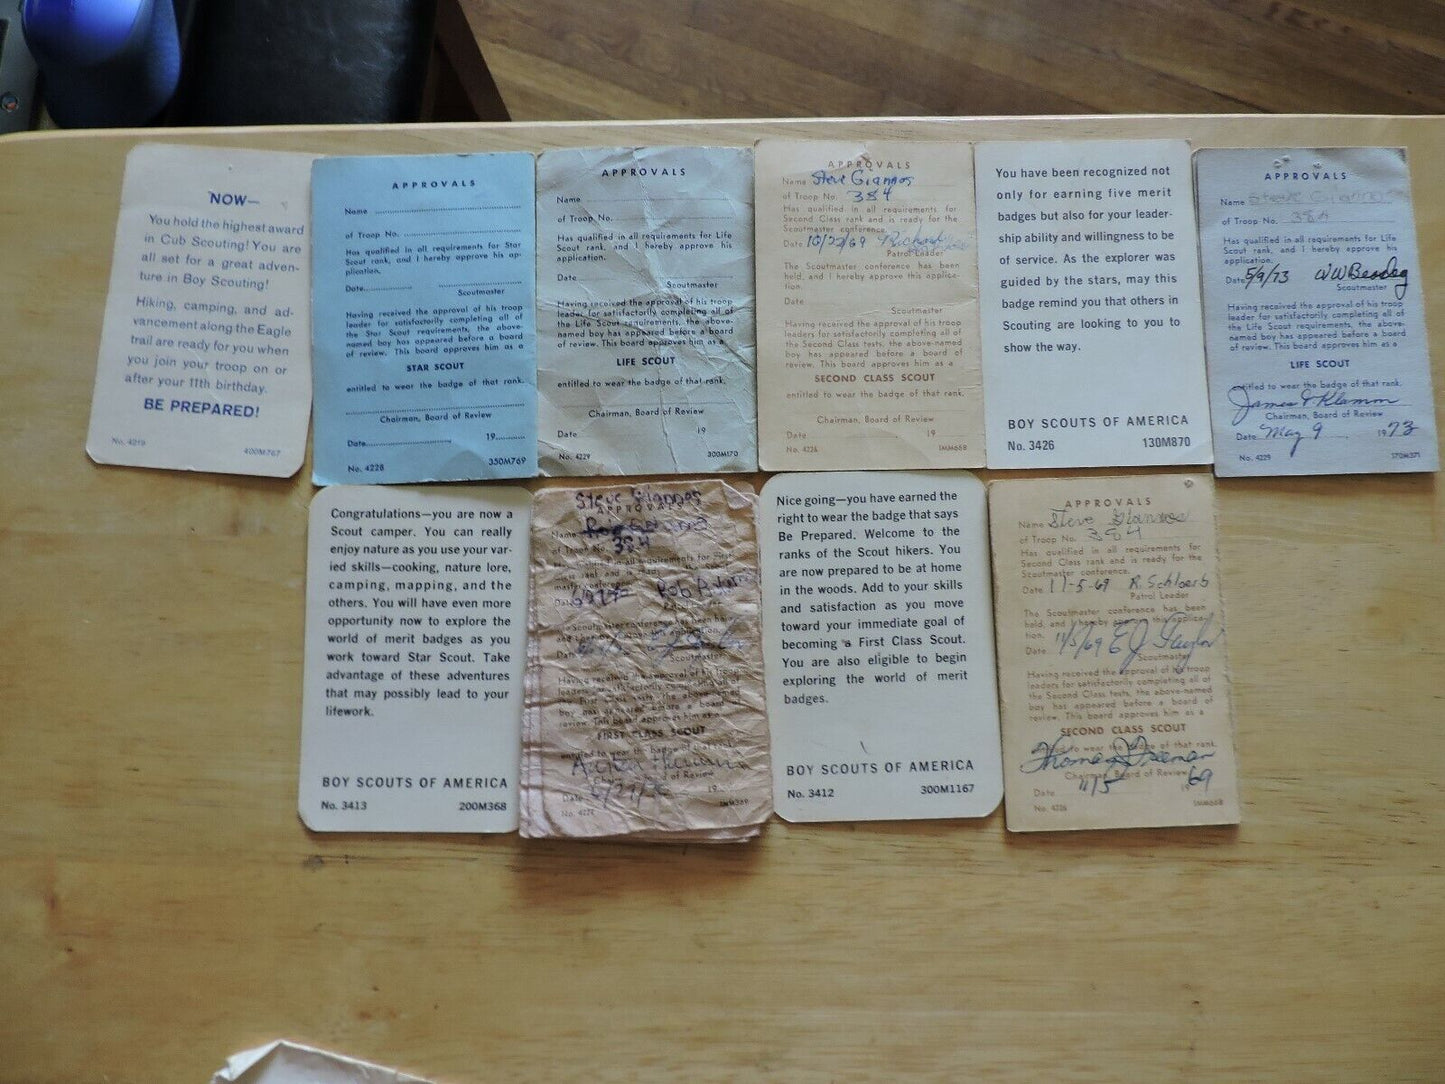 NOW—
You hold the highest award
in Cub Scouting! You are
all set for a great adven-
ture in Boy Scouting!
Hiking, camping, and ad-
vancement along the Eagle
trail are ready for you when
you join your troop on or
after your 11th birthday.
BE PREPARED!
No. 4219 400M767
APPROVALS
Name
of Troop No.
Has qualified in all requirements for Star
Scout rank, and I hereby approve his ap-
plication.
Date
Scoutmaster
Having received the approval of his troop
leader for satisfactorily completing all of
the Star Scout requirements, the above-
named boy has appeared before a board
of review. This board approves him as a
STAR SCOUT
entitled to wear the badge of that rank.
Chairman, Board of Review
Date 19
No. 4228 350M769
APPROVALS
Name
of Troop No.
Has qualified in all requirements for Life
Scout rank, and I hereby approve his
application.
Date
Scoutmaster
Having received the approval of his troop
leader for satisfactorily completing all of
the Life Scout requirements, the above-
named boy has appeared before a board
of review. This board approves him as a
LIFE SCOUT
entitled to wear the badge of that rank.
Chairman, Board of Review
Date 19
No. 4229 300M170
APPROVALS
Name Steve Giannos
of Troop No. 384
Has qualified in all requirements for
Second Class rank and is ready for the
Scoutmaster conference.
Date 10/22/69 Richard
Patrol Leader
The Scoutmaster conference has been
held, and I hereby approve this applica-
tion.
Date
Scoutmaster
Having received the approval of his troop
leaders for satisfactorily completing all of
the Second Class tests, the above-named
boy has appeared before a board of
review. This board approves him as a
SECOND CLASS SCOUT
entitled to wear the badge of that rank.
Chairman, Board of Review
Date 19
No. 4226 1MM668
You have been recognized not
only for earning five merit
badges but also for your leader-
ship ability and willingness to be
of service. As the explorer was
guided by the stars, may this
badge remind you that others in
Scouting are looking to you to
show the way.
BOY SCOUTS OF AMERICA
No. 3426 130M870
APPROVALS
Name Steve Giannos
of Troop No. 384
Has qualified in all requirements for Life
Scout rank, and I hereby approve his
application.
Date 5/9/73 WW
Scoutmaster
Having received the approval of his troop
leader for satisfactorily completing all of
the Life Scout requirements, the above-
named boy has appeared before a board
of review. This board approves him as a
LIFE SCOUT
entitled to wear the badge of that rank.
James Klamm
Chairman, Board of Review
Date May 9 1973
No. 4229 170M371
Congratulations—you are now a
Scout camper. You can really
enjoy nature as you use your var-
ied skills—cooking, nature lore,
camping, mapping, and the
others. You will have even more
opportunity now to explore the
world of merit badges as you
work toward Star Scout. Take
advantage of these adventures
that may possibly lead to your
lifework.
BOY SCOUTS OF AMERICA
No. 3413 200M368
Steve Giannos
APPROVALS
Name
of Troop No. 384
requirements for First
rank and is
Date Rob
Scoutmaster conference has been
Date
Scoutmaster
Having received the approval of his troop
leaders for satisfactorily completing all of
the First Class tests, the above-named
boy has appeared before a board of
review. This board approves him as a
FIRST CLASS SCOUT
entitled to wear the badge of that rank.
Board of Review
Date 19
No. 4227 1MM369
Nice going—you have earned the
right to wear the badge that says
Be Prepared. Welcome to the
ranks of the Scout hikers. You
are now prepared to be at home
in the woods. Add to your skills
and satisfaction as you move
toward your immediate goal of
becoming a First Class Scout.
You are also eligible to begin
exploring the world of merit
badges.
BOY SCOUTS OF AMERICA
No. 3412 300M1167
APPROVALS
Name Steve Giannos
of Troop No. 384
Has qualified in all requirements for
Second Class rank and is ready for the
Scoutmaster conference.
Date 11-5-69 R. Schloerb
Patrol Leader
The Scoutmaster conference has been
held, and I hereby approve this applica-
tion.
Date 11/5/69 E J Taylor
Scoutmaster
Having received the approval of his troop
leaders for satisfactorily completing all of
the Second Class tests, the above-named
boy has appeared before a board of
review. This board approves him as a
SECOND CLASS SCOUT
entitled to wear the badge of that rank.
Thomas J Freeman
Chairman, Board of Review
Date 11/5 1969
No. 4226 1MM668